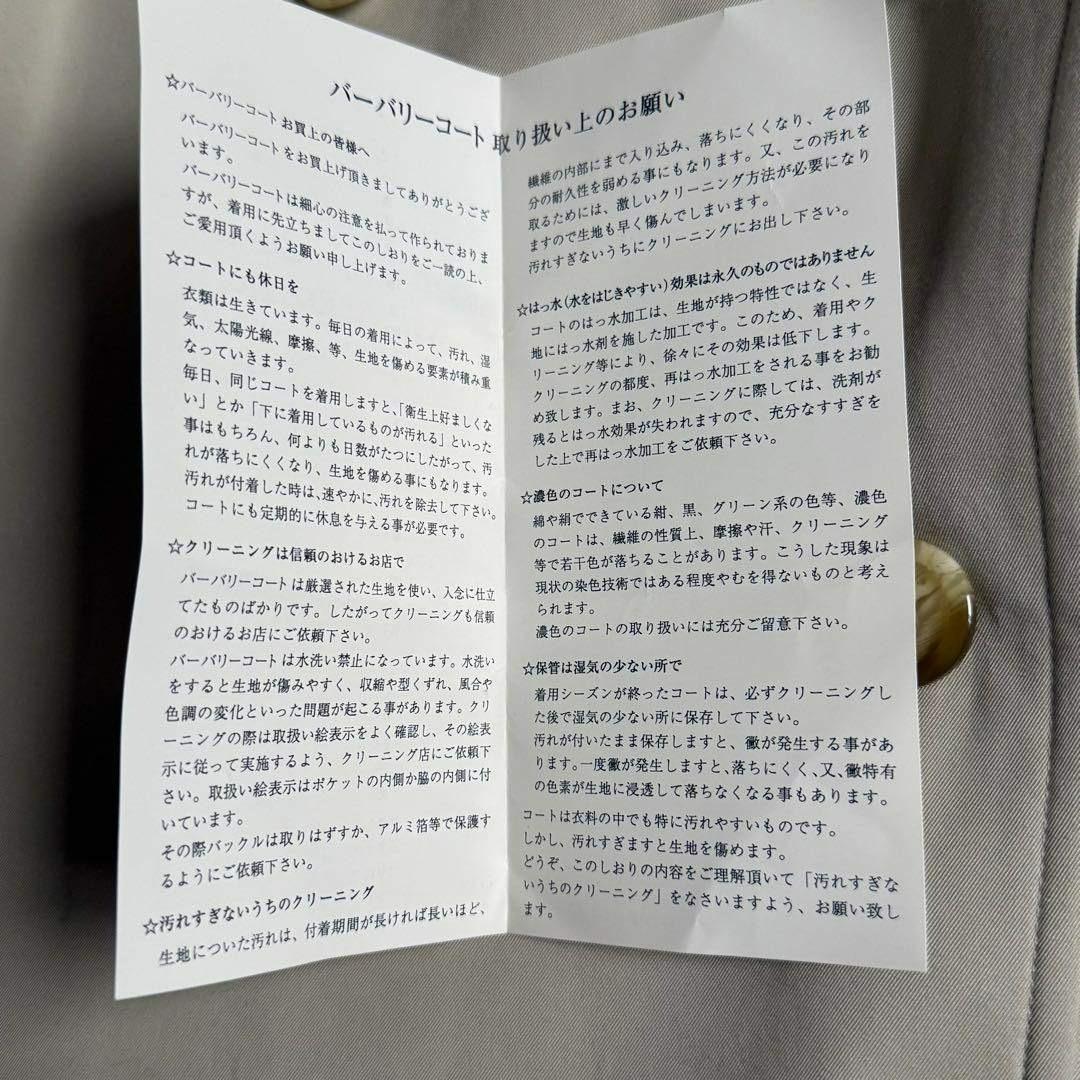 バーバリーコート取り扱い上のお願い
☆バーバリーコートお買上の皆様へ
バーバリーコートをお買上げ頂きましてありがとうござ
います。
バーバリーコートは細心の注意を払って作られておりま
すが、着用に先立ちましてこのしおりをご一読の上、
ご愛用頂くようお願い申し上げます。
☆コートにも休日を
衣類は生きています。毎日の着用によって、汚れ、湿
気、太陽光線、摩擦、等、生地を傷める要素が積み重
なっていきます。
毎日、同じコートを着用しますと、「衛生上好ましくな
い」とか「下に着用しているものが汚れる」といった
事はもちろん、何よりも日数がたつにしたがって、汚
れが落ちにくくなり、生地を傷める事にもなります。
汚れが付着した時は、速やかに、汚れを除去して下さい。
コートにも定期的に休息を与える事が必要です。
☆クリーニングは信頼のおけるお店で
バーバリーコートは厳選された生地を使い、入念に仕立
てたものばかりです。したがってクリーニングも信頼
のおけるお店にご依頼下さい。
バーバリーコートは水洗い禁止になっています。水洗い
をすると生地が傷みやすく、収縮や型くずれ、風合や
色調の変化といった問題が起こる事があります。クリ
ーニングの際は取扱い絵表示をよく確認し、その絵表
示に従って実施するよう、クリーニング店にご依頼下
さい。取扱い絵表示はポケットの内側か脇の内側に付
いています。
その際バックルは取りはずすか、アルミ箔等で保護す
るようにご依頼下さい。
☆汚れすぎないうちのクリーニング
生地についた汚れは、付着期間が長ければ長いほど、
繊維の内部にまで入り込み、落ちにくくなり、その部
分の耐久性を弱める事にもなります。又、この汚れを
取るためには、激しいクリーニング方法が必要になり
ますので生地も早く傷んでしまいます。
汚れすぎないうちにクリーニングにお出し下さい。
☆はっ水(水をはじきやすい)効果は永久のものではありません
コートのはっ水加工は、生地が持つ特性ではなく、生
地にはっ水剤を施した加工です。このため、着用やク
リーニング等により、徐々にその効果は低下します。
クリーニングの都度、再はっ水加工をされる事をお勧
め致します。まお、クリーニングに際しては、洗剤が
残るとはっ水効果が失われますので、充分なすすぎを
した上で再はっ水加工をご依頼下さい。
☆濃色のコートについて
綿や絹でできている紺、黒、グリーン系の色等、濃色
のコートは、繊維の性質上、摩擦や汗、クリーニング
等で若干色が落ちることがあります。こうした現象は
現状の染色技術ではある程度やむを得ないものと考え
られます。
濃色のコートの取り扱いには充分ご留意下さい。
☆保管は湿気の少ない所で
着用シーズンが終ったコートは、必ずクリーニングし
た後で湿気の少ない所に保存して下さい。
汚れが付いたまま保存しますと、黴が発生する事があ
ります。一度黴が発生しますと、落ちにくく、又、黴特有
の色素が生地に浸透して落ちなくなる事もあります。
コートは衣料の中でも特に汚れやすいものです。
しかし、汚れすぎますと生地を傷めます。
どうぞ、このしおりの内容をご理解頂いて「汚れすぎな
いうちのクリーニング」をなさいますよう、お願い致し
ます。